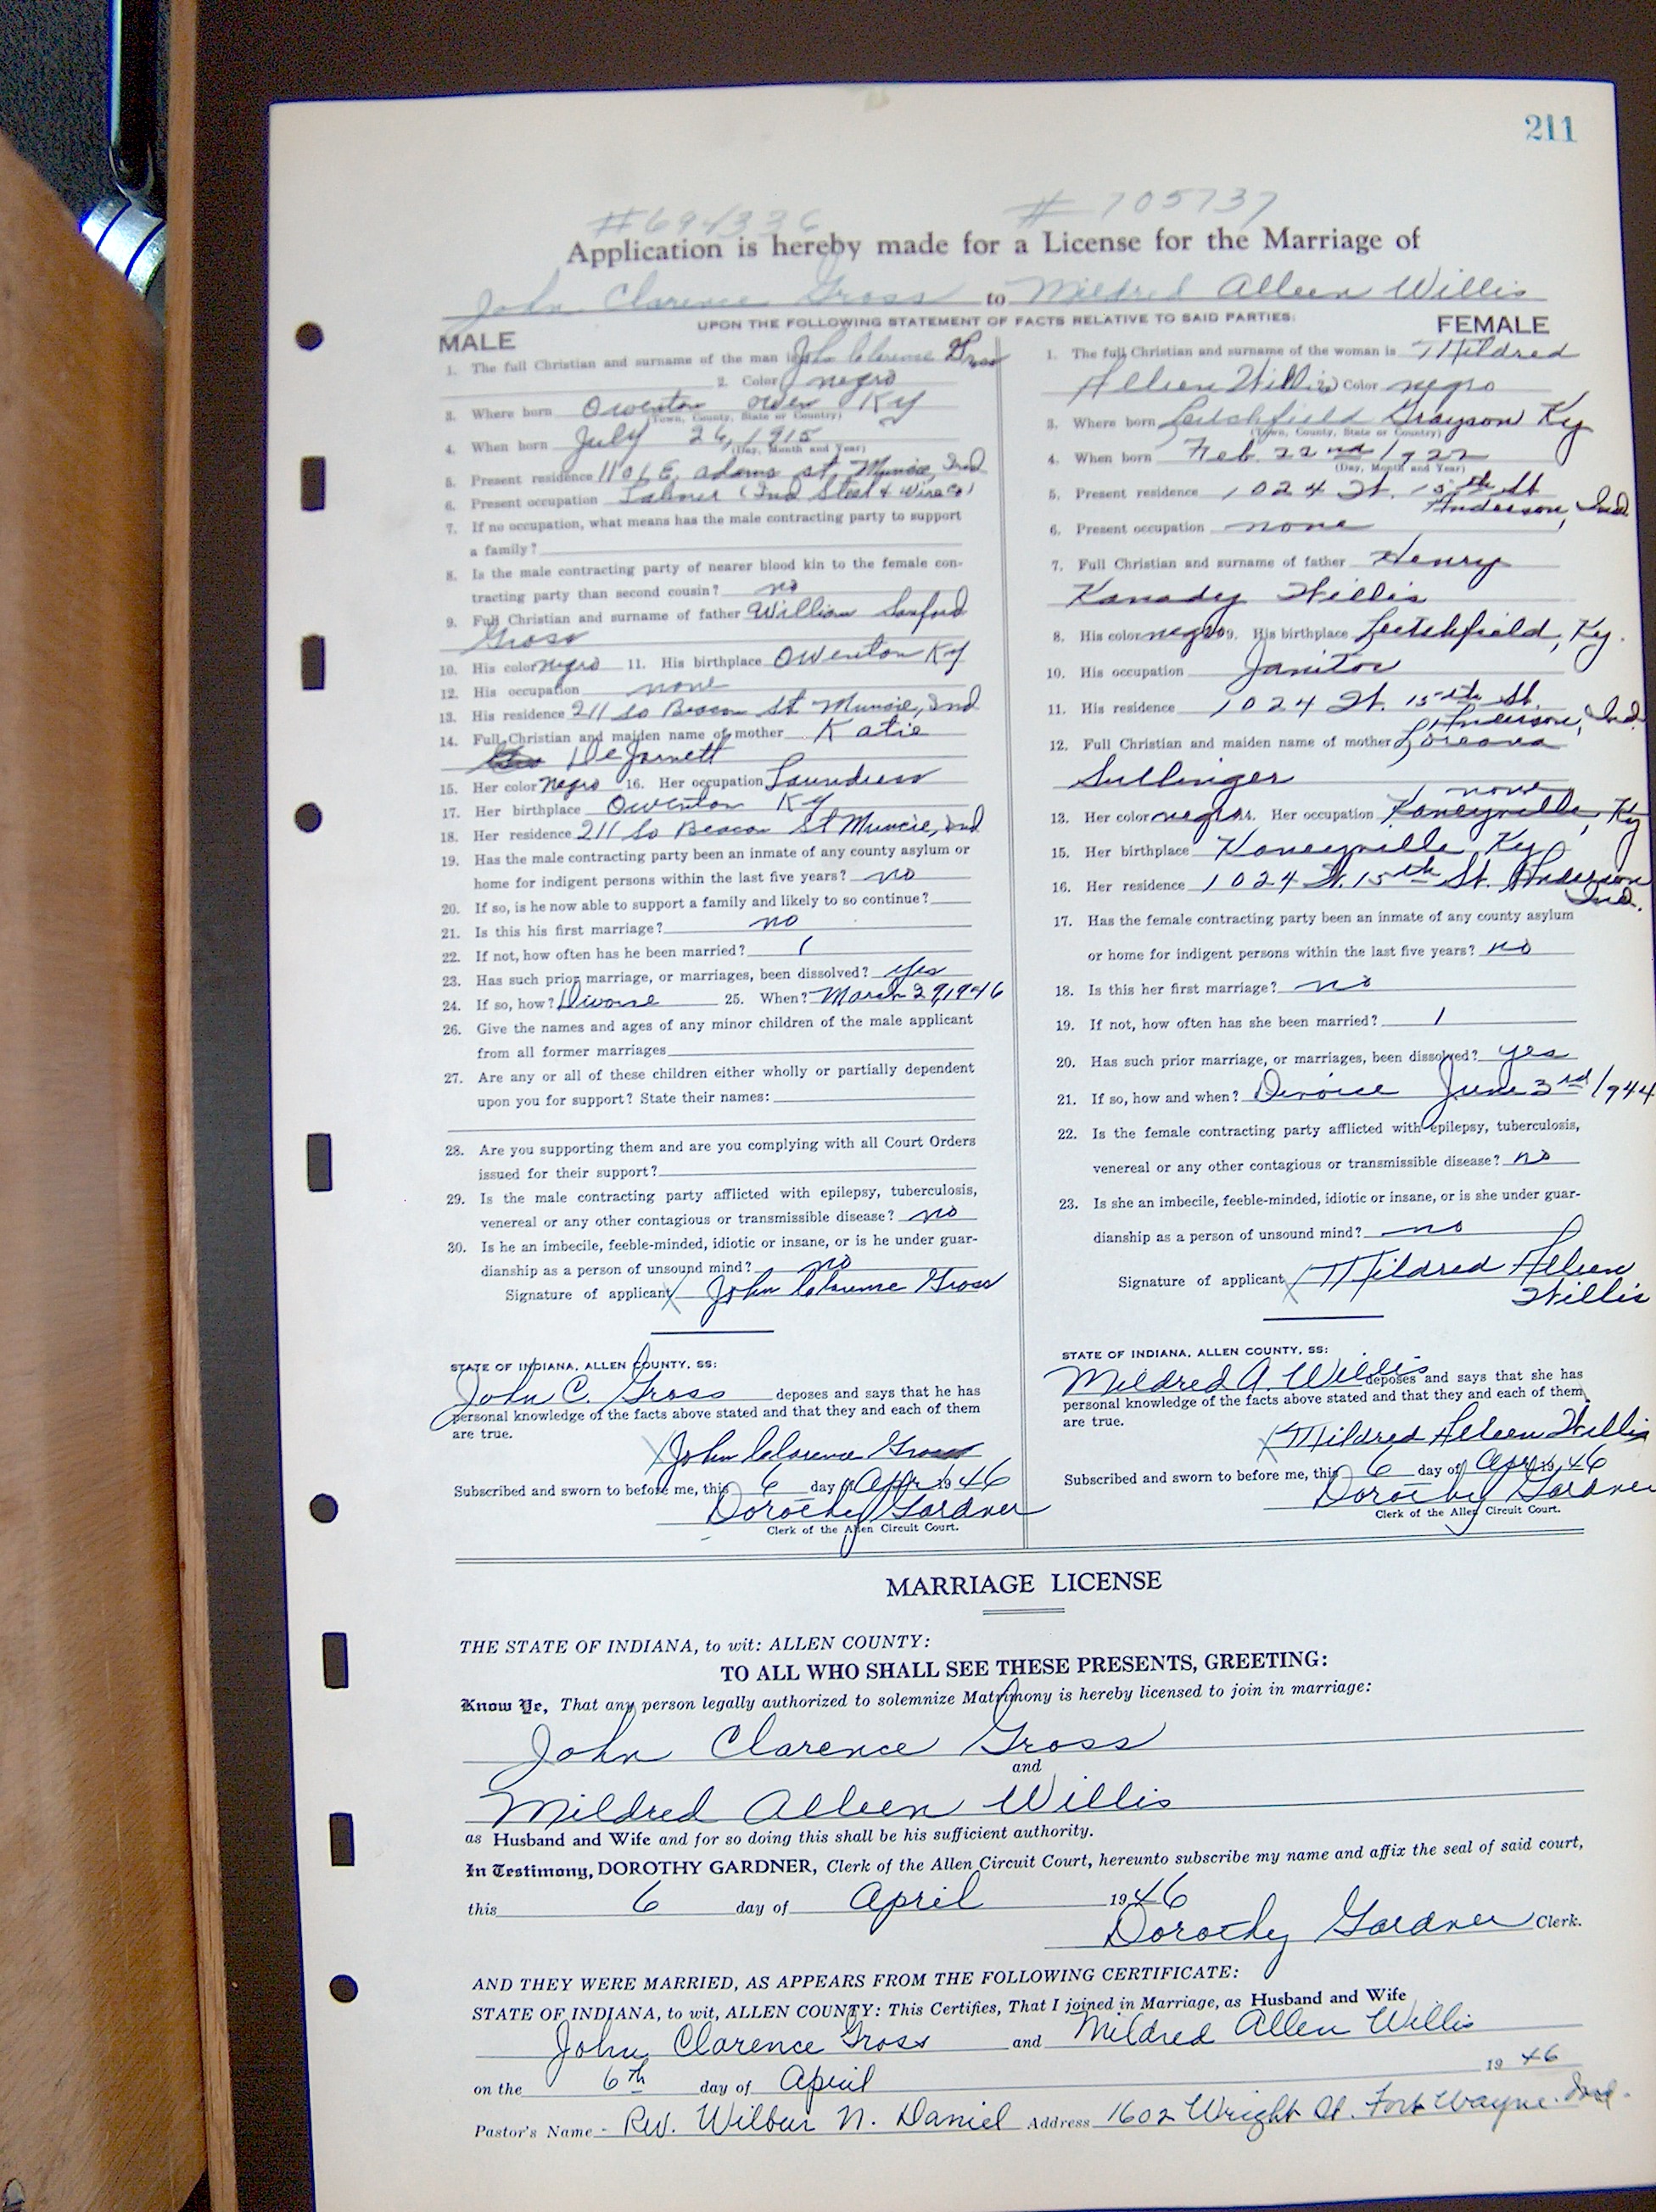 211
#694336 # 705737
Application is hereby made for a License for the Marriage of
John Clarence Gross to Mildred Alleen Willis
UPON THE FOLLOWING STATEMENT OF FACTS RELATIVE TO SAID PARTIES:
MALE
1. The full Christian and surname of the man is John Clarence Gross
2. Color negro
3. Where born Owenton Owen Ky
(Town, County, State or Country)
4. When born July 26, 1915
(Day, Month and Year)
5. Present residence 1101 E. adams st. Muncie, Ind
6. Present occupation Laborer (Ind Steel & Wire Co)
7. If no occupation, what means has the male contracting party to support
a family?
8. Is the male contracting party of nearer blood kin to the female con-
tracting party than second cousin? no
9. Full Christian and surname of father William Sanford
Gross
10. His color negro 11. His birthplace Owenton Ky
12. His occupation none
13. His residence 211 So Beacon St Muncie, Ind
14. Full Christian and maiden name of mother Katie
DeJarnett
15. Her color Negro 16. Her occupation Laundress
17. Her birthplace Owenton Ky
18. Her residence 211 So Beacon St Muncie, Ind
19. Has the male contracting party been an inmate of any county asylum or
home for indigent persons within the last five years? no
20. If so, is he now able to support a family and likely to so continue?
21. Is this his first marriage? no
22. If not, how often has he been married? 1
23. Has such prior marriage, or marriages, been dissolved? yes
24. If so, how? Divorce 25. When? March 29, 1946
26. Give the names and ages of any minor children of the male applicant
from all former marriages
27. Are any or all of these children either wholly or partially dependent
upon you for support? State their names:
28. Are you supporting them and are you complying with all Court Orders
issued for their support?
29. Is the male contracting party afflicted with epilepsy, tuberculosis,
venereal or any other contagious or transmissible disease? no
30. Is he an imbecile, feeble-minded, idiotic or insane, or is he under guar-
dianship as a person of unsound mind? no
Signature of applicant X John Clarence Gross
STATE OF INDIANA, ALLEN COUNTY, SS:
John C. Gross deposes and says that he has
personal knowledge of the facts above stated and that they and each of them
are true.
X John Clarence Gross
Subscribed and sworn to before me, this 6 day of Apr 1946
Dorothy Gardner
Clerk of the Allen Circuit Court.
FEMALE
1. The full Christian and surname of the woman is Mildred
Alleen Willis 2. Color negro
3. Where born Leitchfield Grayson Ky
(Town, County, State or Country)
4. When born Feb. 22nd 1922
(Day, Month and Year)
5. Present residence 1024 W. 15th St
Anderson, Ind.
6. Present occupation none
7. Full Christian and surname of father Henry
Kanady Willis
8. His color negro 9. His birthplace Leitchfield, Ky.
10. His occupation Janitor
11. His residence 1024 W. 15th St.
Anderson, Ind.
12. Full Christian and maiden name of mother Loreana
Sullinger
none
13. Her color negro 14. Her occupation Kaneyville, Ky
15. Her birthplace Kaneyville Ky
16. Her residence 1024 W. 15th St. Anderson
Ind.
17. Has the female contracting party been an inmate of any county asylum
or home for indigent persons within the last five years? no
18. Is this her first marriage? no
19. If not, how often has she been married? 1
20. Has such prior marriage, or marriages, been dissolved? yes
21. If so, how and when? Divorce June 3rd 1944
22. Is the female contracting party afflicted with epilepsy, tuberculosis,
venereal or any other contagious or transmissible disease? no
23. Is she an imbecile, feeble-minded, idiotic or insane, or is she under guar-
dianship as a person of unsound mind? no
Signature of applicant X Mildred Alleen
Willis
STATE OF INDIANA, ALLEN COUNTY, SS:
Mildred A. Willis deposes and says that she has
personal knowledge of the facts above stated and that they and each of them
are true.
X Mildred Alleen Willis
Subscribed and sworn to before me, this 6 day of Apr 1946
Dorothy Gardner
Clerk of the Allen Circuit Court.
MARRIAGE LICENSE
THE STATE OF INDIANA, to wit: ALLEN COUNTY:
TO ALL WHO SHALL SEE THESE PRESENTS, GREETING:
Know Ye, That any person legally authorized to solemnize Matrimony is hereby licensed to join in marriage:
John Clarence Gross
and
Mildred Alleen Willis
as Husband and Wife and for so doing this shall be his sufficient authority.
In Testimony, DOROTHY GARDNER, Clerk of the Allen Circuit Court, hereunto subscribe my name and affix the seal of said court,
this 6 day of April 1946
Dorothy Gardner Clerk.
AND THEY WERE MARRIED, AS APPEARS FROM THE FOLLOWING CERTIFICATE:
STATE OF INDIANA, to wit, ALLEN COUNTY: This Certifies, That I joined in Marriage, as Husband and Wife
John Clarence Gross and Mildred Allen Willis
on the 6th day of April 1946
Pastor's Name - Rev. Wilbur N. Daniel Address 1602 Wright St. Fort Wayne. Ind.